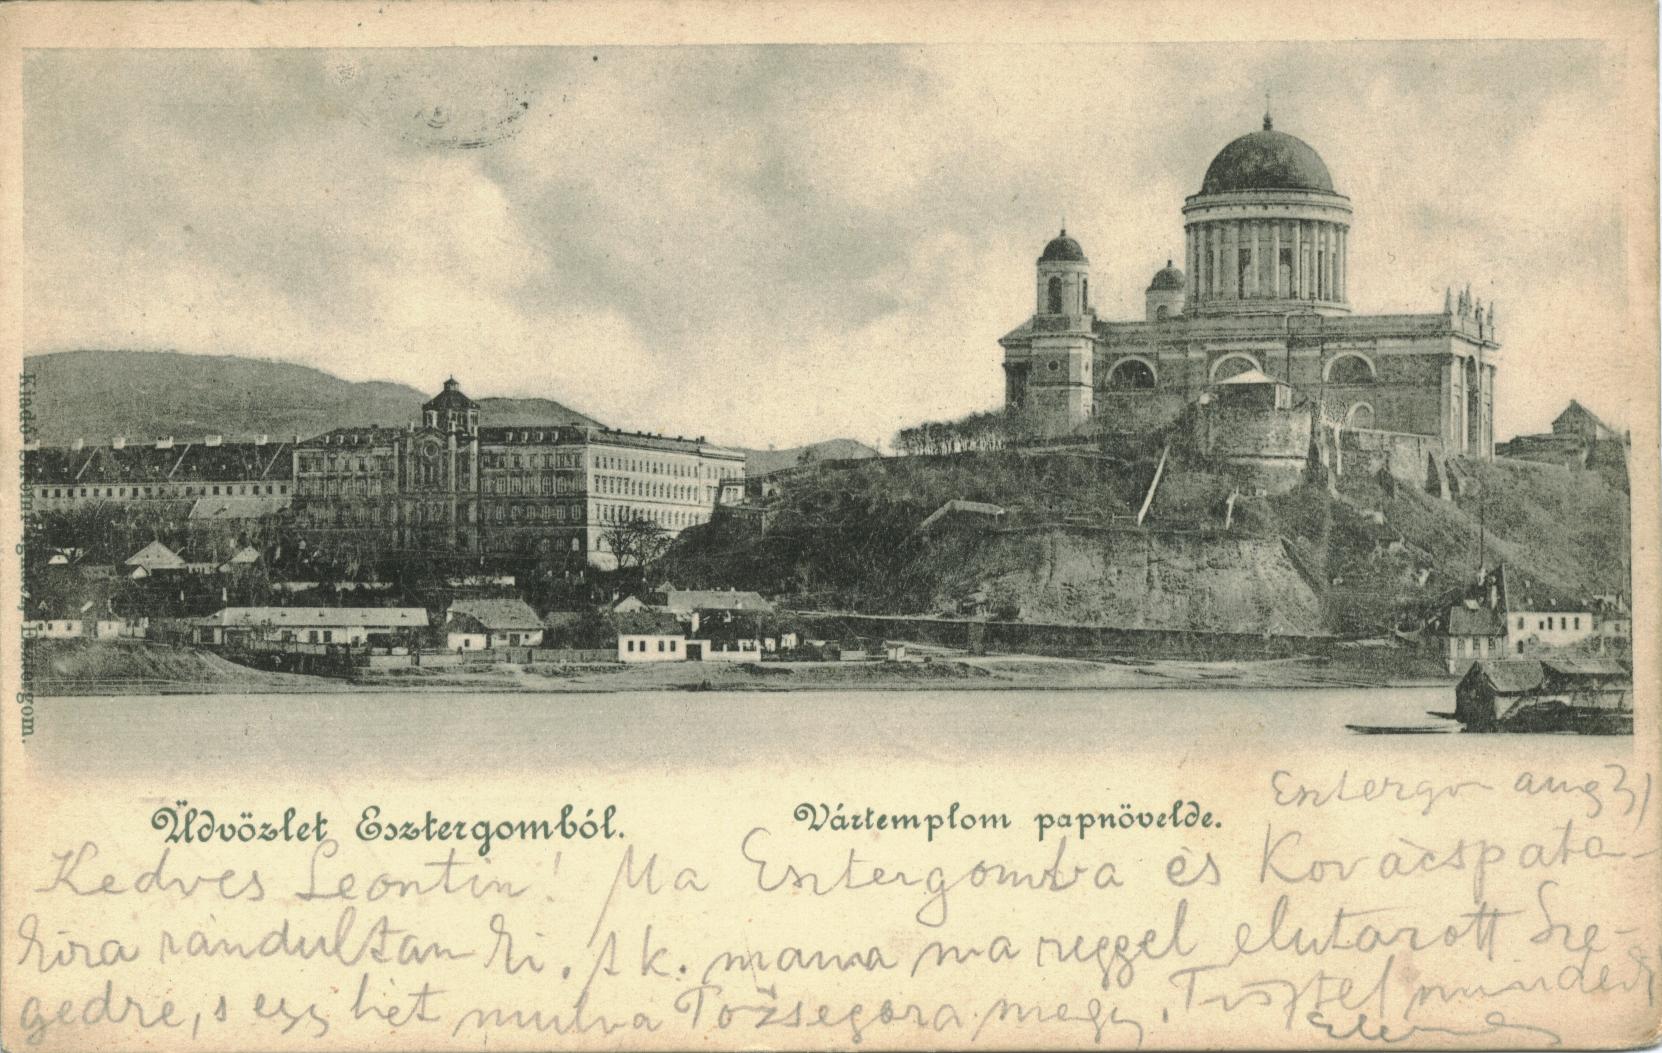 Üdvözlet Esztergomból.
Vártemplom papnövelde.
Kiadó Esztergom.
Esztergom aug 31
Kedves Leontin! Ma Esztergomba és Kovácspata-
kira rándultam ki. A k. mama ma reggel elutazott Sze-
gedre, s egy hét mulva Tőzsegora megy. Tisztel mindenk